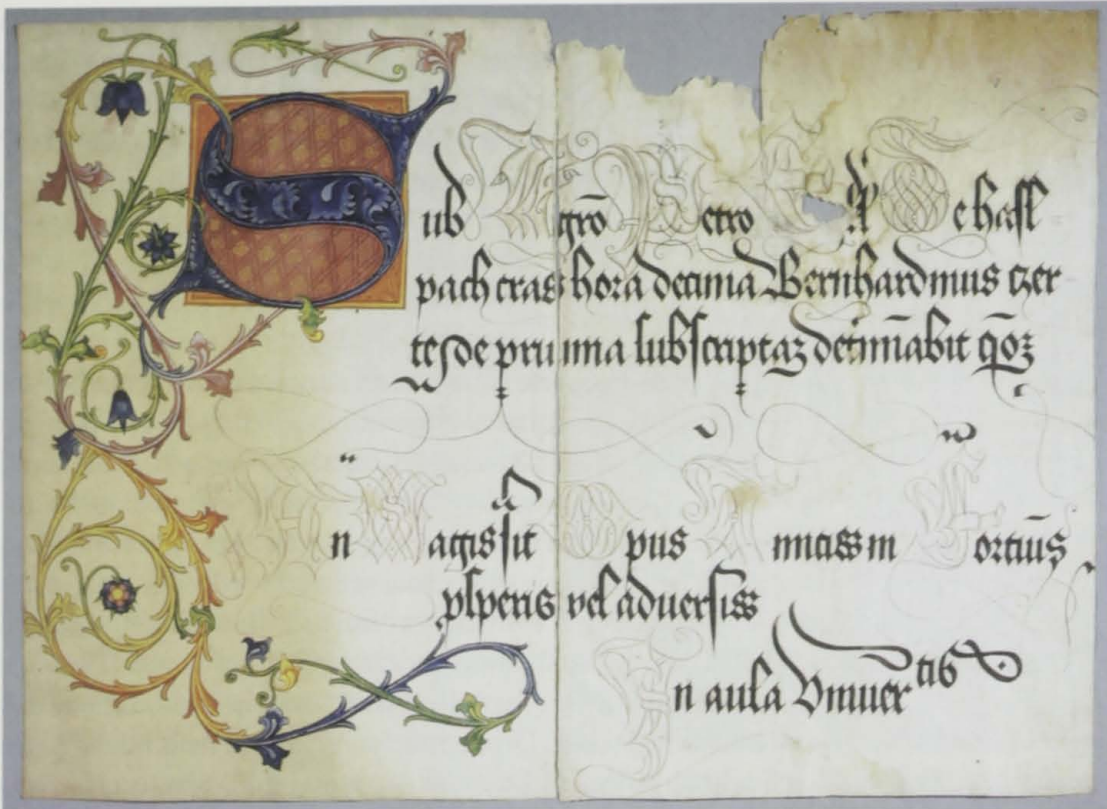 Sub Mgrō Petro De hasl
pach cras hora decima Bernhardinus czer
tes de prunna subscriptaz detīnabit q̄oz
An Magis sit Opus Amicis in Fortūis
ꝓsperis vel aduersis
In aula Vniuertis